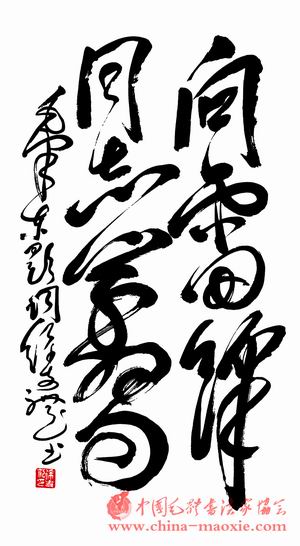 向雷锋
同志学习
毛泽东题词
书
中国毛体书法家协会
www.china-maoxie.com